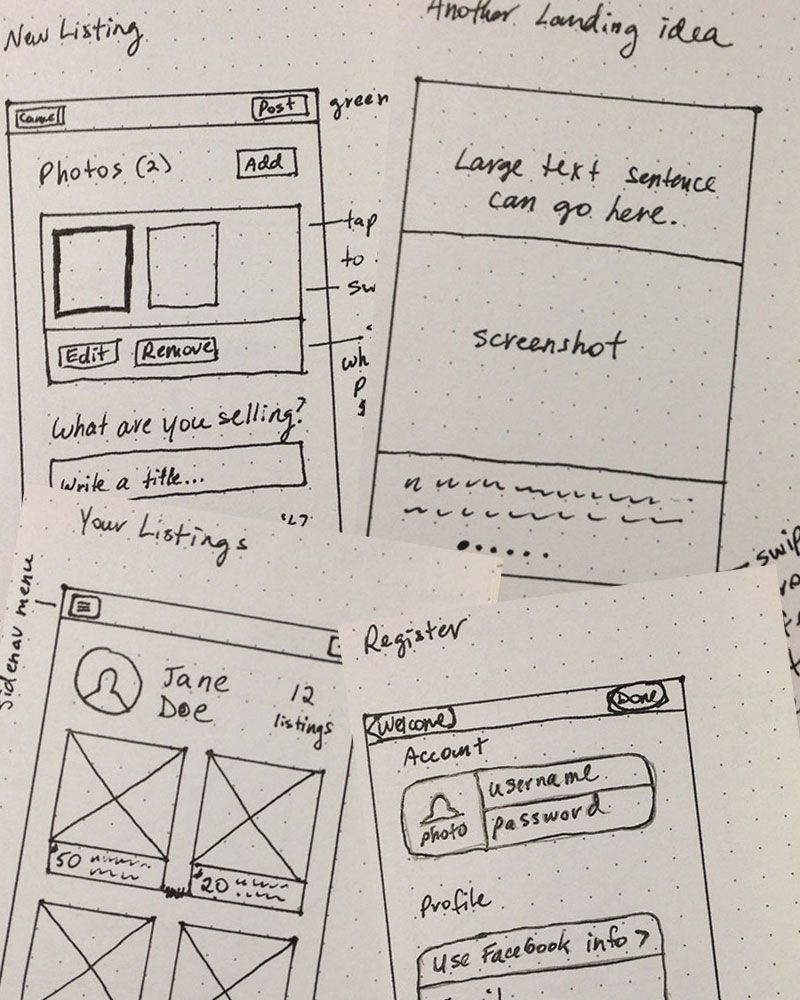 New Listing
Cancel
Post
green
Photos (2)
Add
tap
to
sw
Edit
Remove
wh
p
What are you selling?
Write a title...
Another Landing idea
Large text sentence
can go here.
screenshot
swip
Your Listings
sidenav menu
Jane
Doe
12
listings
$50
$20
Register
Welcome
Done
Account
photo
username
password
Profile
Use Facebook info >